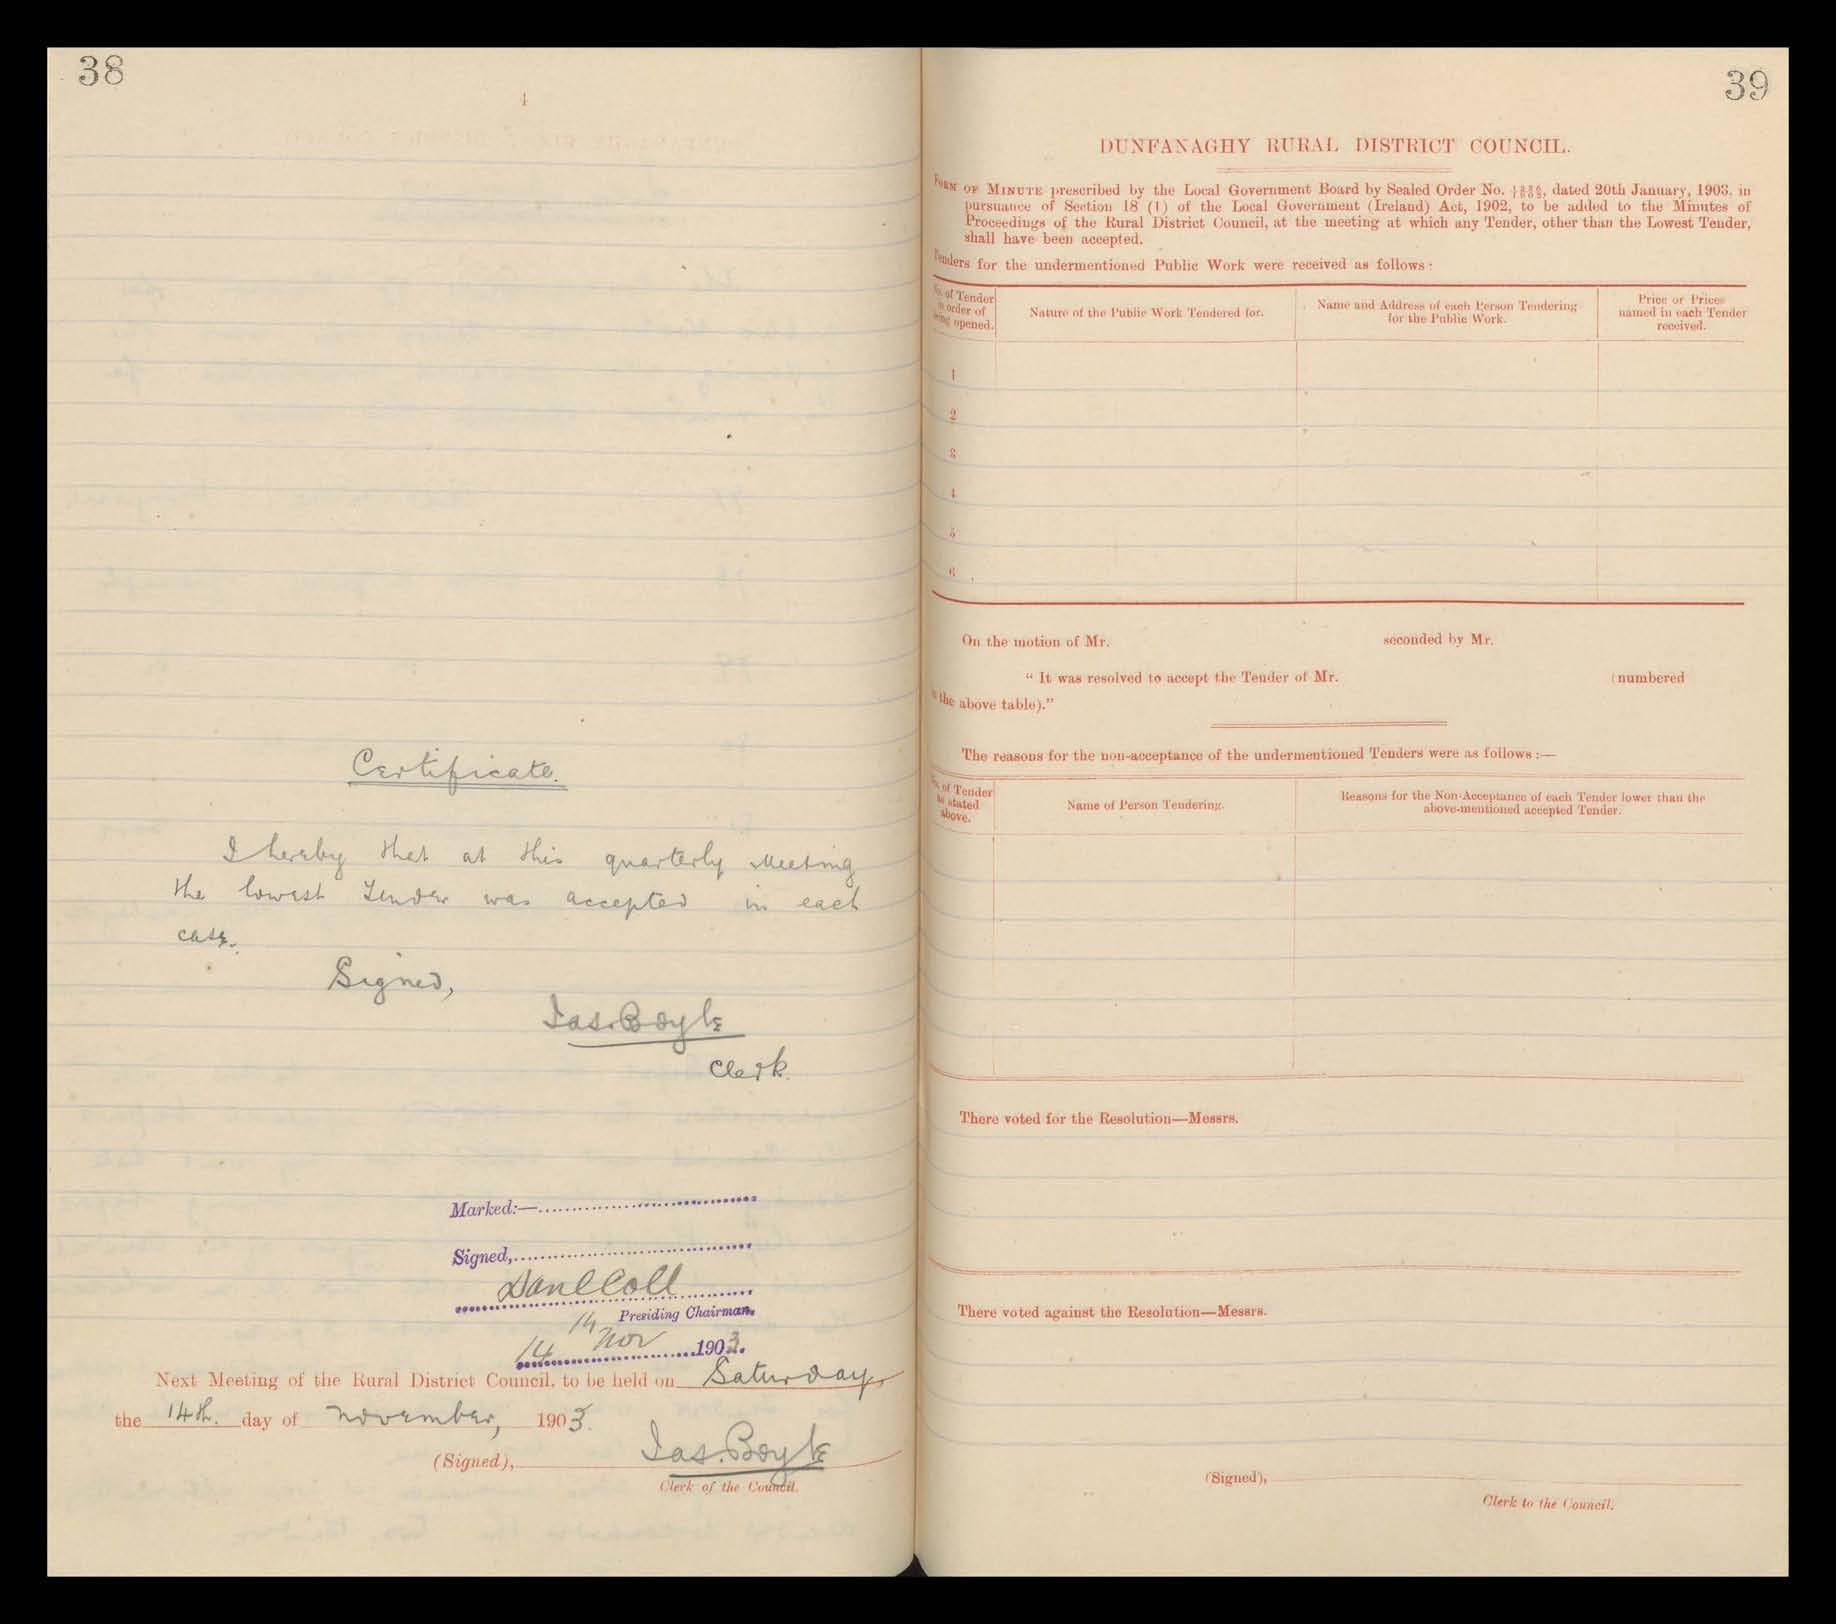 38
4
Certificate.
I hereby that at this quarterly Meeting
the lowest Tender was accepted in each
case.
Signed,
Jas. Boyle
Clerk.
Marked:—
Signed,
Danl Coll
Presiding Chairman.
14 Nov 1903.
Next Meeting of the Rural District Council, to be held on Saturday,
the 14th. day of November, 1903.
(Signed), Jas. Boyle
Clerk of the Council.
39
DUNFANAGHY RURAL DISTRICT COUNCIL.
FORM OF MINUTE prescribed by the Local Government Board by Sealed Order No. dated 20th January, 1903, in
pursuance of Section 18 (1) of the Local Government (Ireland) Act, 1902, to be added to the Minutes of
Proceedings of the Rural District Council, at the meeting at which any Tender, other than the Lowest Tender,
shall have been accepted.
Tenders for the undermentioned Public Work were received as follows:
No. of Tender
in order of
being opened.
Nature of the Public Work Tendered for.
Name and Address of each Person Tendering
for the Public Work.
Price or Prices
named in each Tender
received.
1
2
3
4
5
6
On the motion of Mr. seconded by Mr.
“It was resolved to accept the Tender of Mr. (numbered
in the above table).”
The reasons for the non-acceptance of the undermentioned Tenders were as follows:—
No. of Tender
as stated
above.
Name of Person Tendering.
Reasons for the Non-Acceptance of each Tender lower than the
above-mentioned accepted Tender.
There voted for the Resolution—Messrs.
There voted against the Resolution—Messrs.
(Signed),
Clerk to the Council.